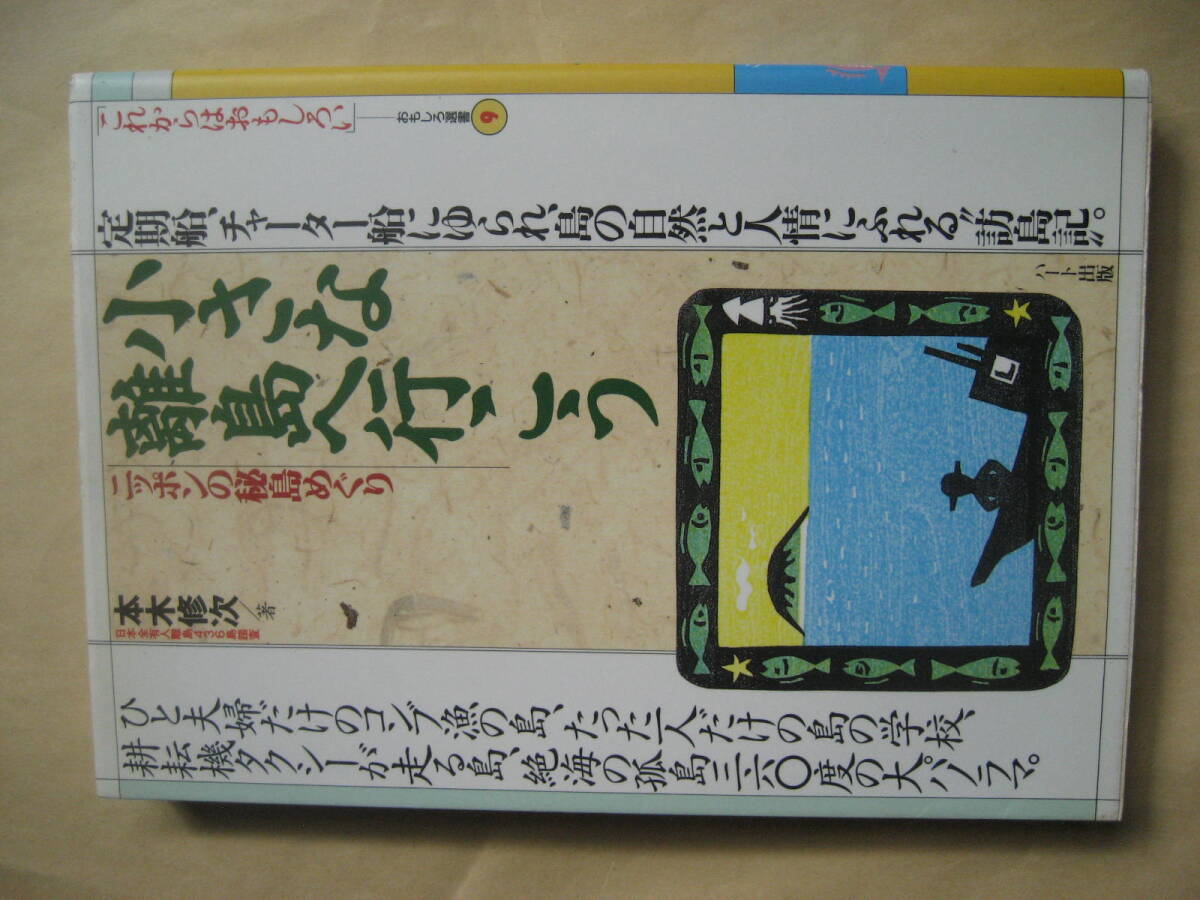 「これからはおもしろい」
おもしろ選書
9
定期船、チャーター船にゆられ、島の自然と人情にふれる“訪島記”。
小さな
離島へ行こう
ニッポンの秘島めぐり
本木修次／著
日本全有人離島436島踏査
ハート出版
ひと夫婦だけのコンブ漁の島、たった一人だけの島の学校、
耕耘機タクシーが走る島、絶海の孤島三六〇度の大パノラマ。